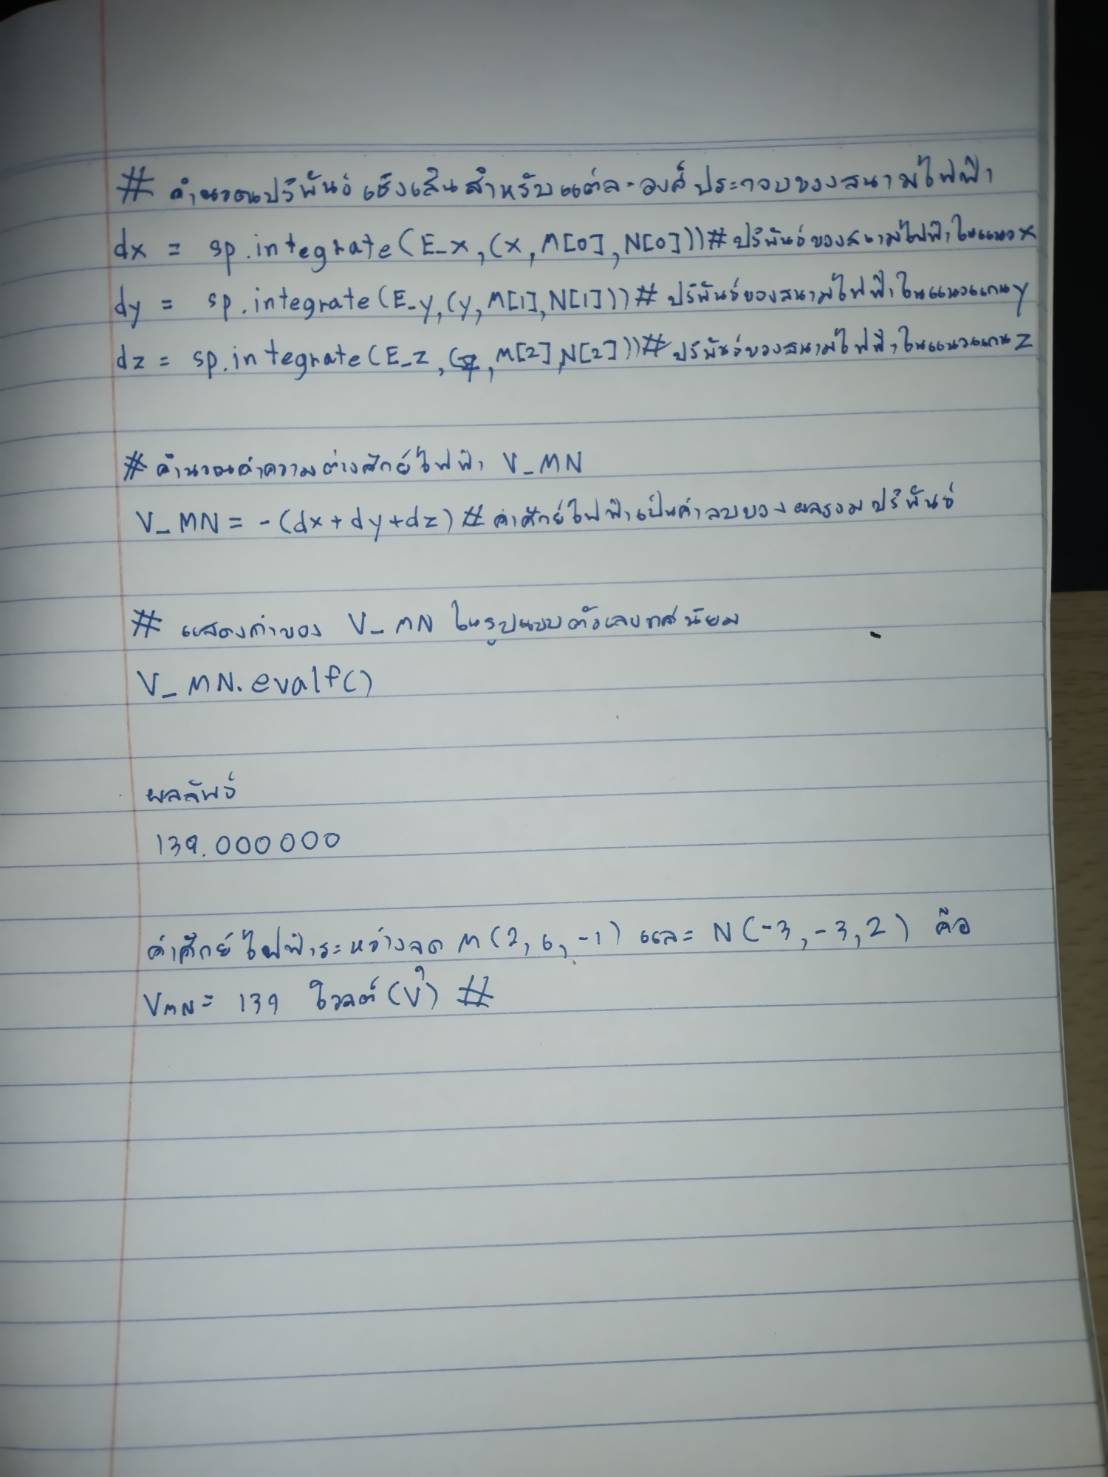 # คำนวณปริพันธ์เชิงเส้นสำหรับแต่ละองค์ประกอบของสนามไฟฟ้า
dx = sp.integrate(E_x,(x,M[0],N[0]))# ปริพันธ์ของสนามไฟฟ้าในแนวx
dy = sp.integrate(E_y,(y,M[1],N[1]))# ปริพันธ์ของสนามไฟฟ้าในแนวแกนy
dz = sp.integrate(E_z,(z,M[2],N[2]))# ปริพันธ์ของสนามไฟฟ้าในแนวแกนz
# คำนวณค่าความต่างศักย์ไฟฟ้า V_MN
V_MN = -(dx+dy+dz) # ค่าศักย์ไฟฟ้าเป็นค่าลบของผลรวมปริพันธ์
# แสดงค่าของ V_MN ในรูปแบบตัวเลขทศนิยม
V_MN.evalf()
ผลลัพธ์
139.000000
ค่าศักย์ไฟฟ้าระหว่างจุด M(2,6,-1) และ N(-3,-3,2) คือ
VMN = 139 โวลต์ (V) #